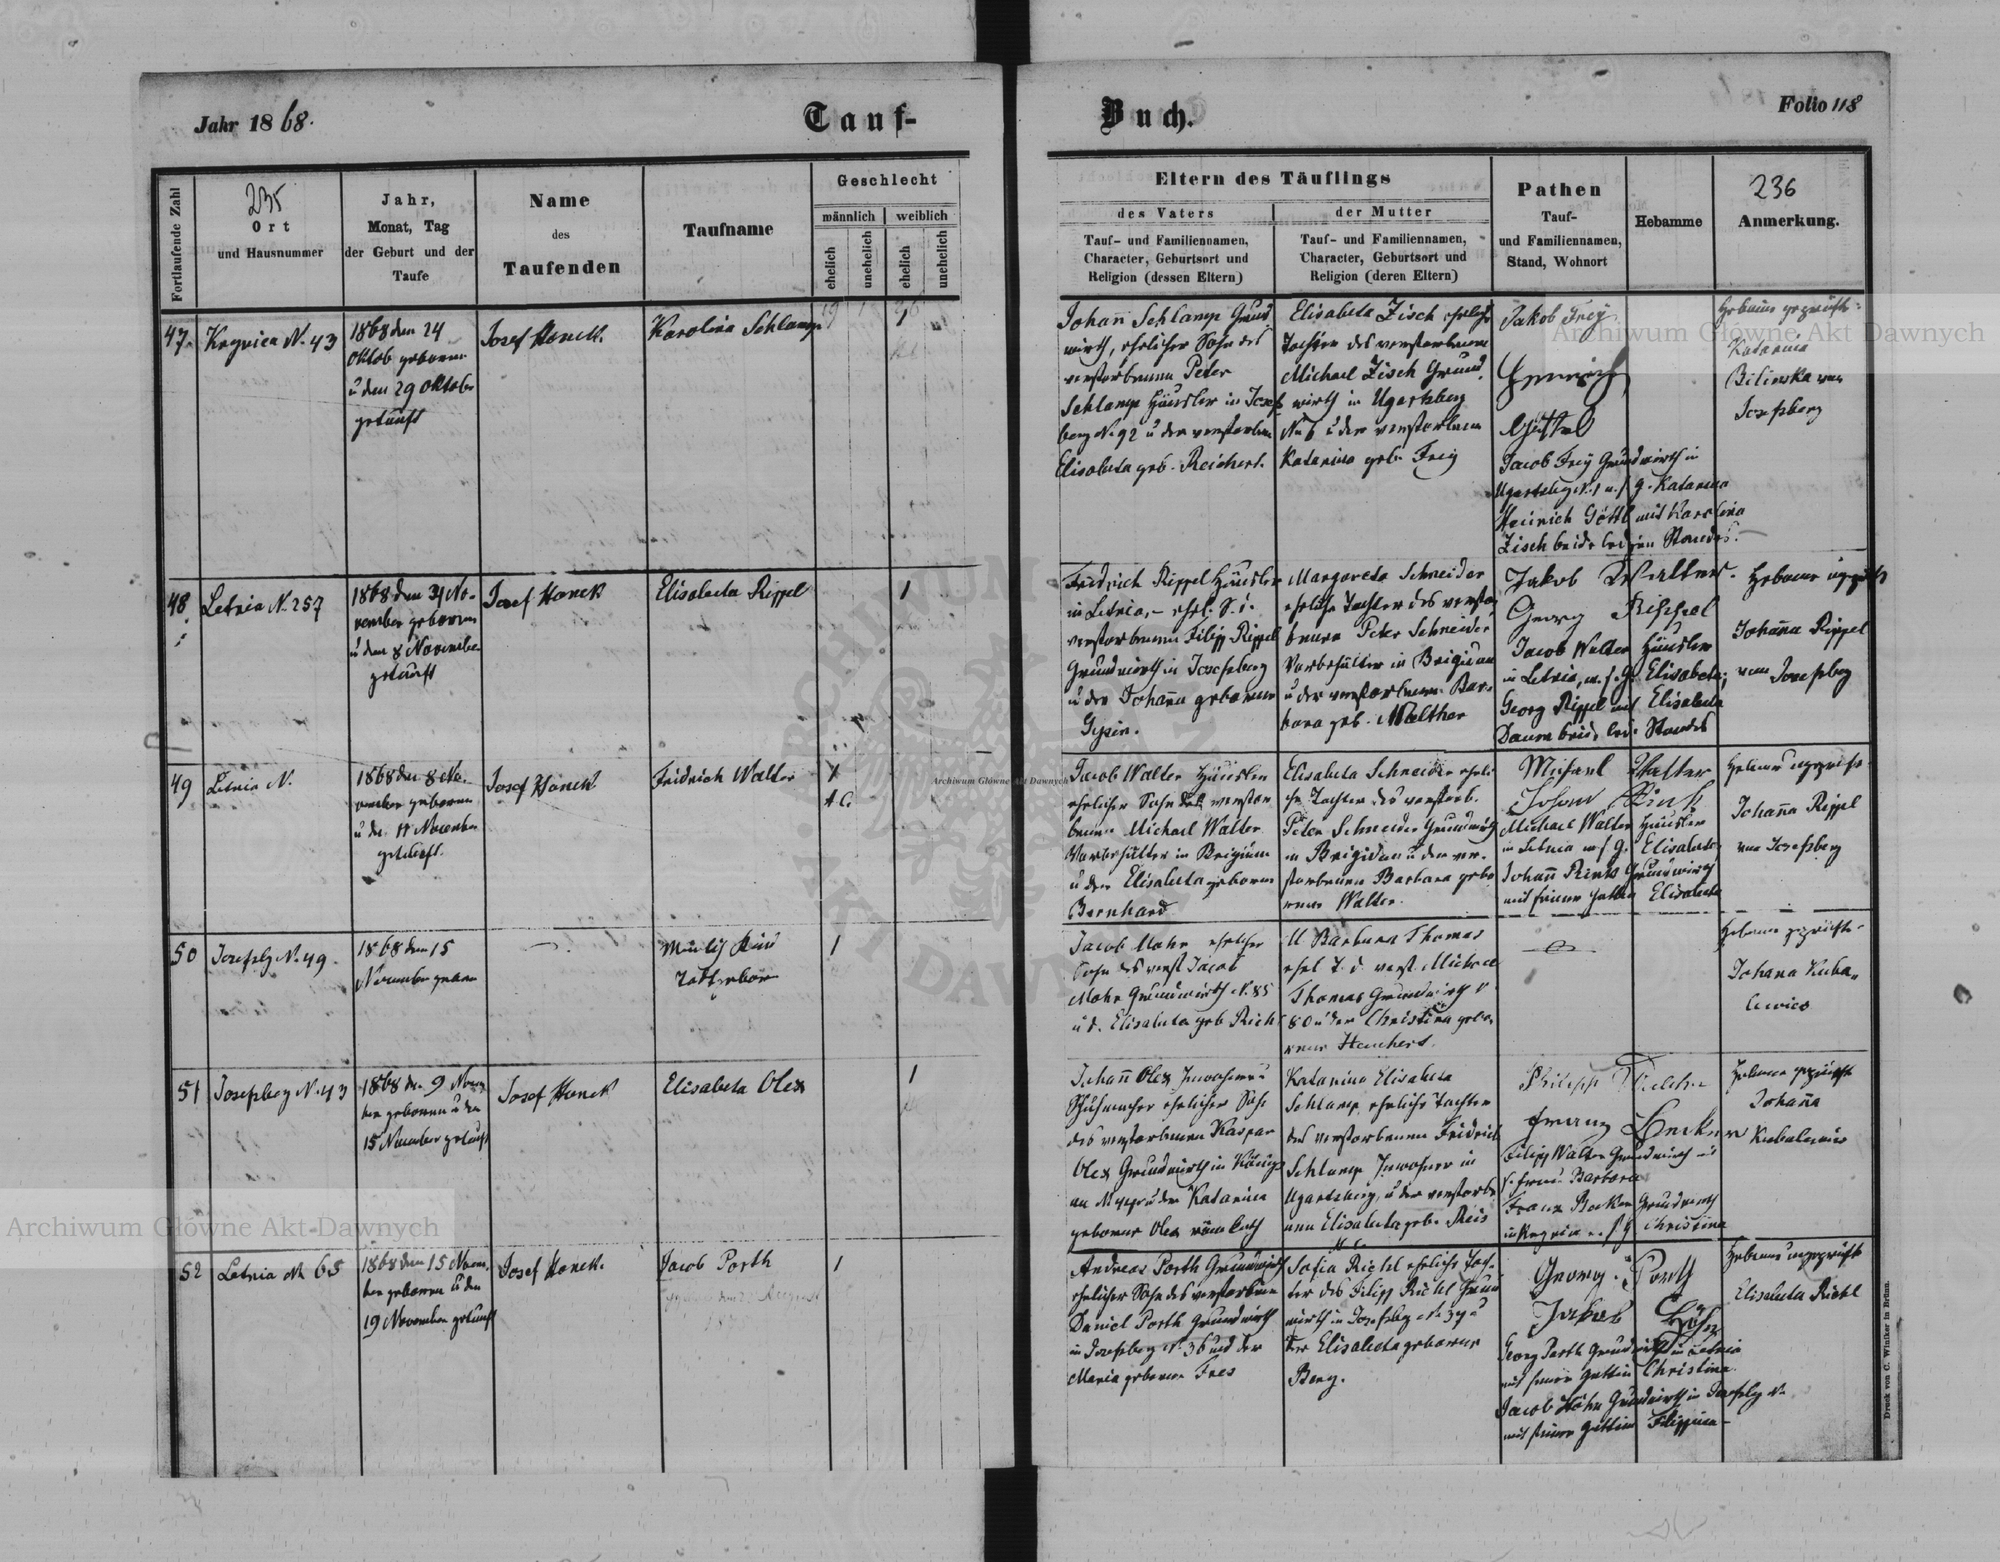 Jahr 1868.
Tauf-
Buch.
Folio 118
Fortlaufende Zahl
235
Ort
und Hausnummer
Jahr,
Monat, Tag
der Geburt und der
Taufe
Name
des
Taufenden
Taufname
Geschlecht
männlich
weiblich
ehelich
unehelich
ehelich
unehelich
Eltern des Täuflings
des Vaters
Tauf- und Familiennamen,
Character, Geburtsort und
Religion (dessen Eltern)
der Mutter
Tauf- und Familiennamen,
Character, Geburtsort und
Religion (deren Eltern)
Pathen
Tauf-
und Familiennamen,
Stand, Wohnort
Hebamme
236
Anmerkung.
47.
N. 43
1868 den 24
Oktob geboren
u den 29 Oktober
getauft
Josef Honek.
Karolina Schlamp
1
Johañ Schlamp Grund
wirth, ehelicher Sohn des
verstorbenen Peter
Schlamp Häusler in Josefs
berg N. 92 u der verstorbenen
Elisabeta geb. Reichert.
Elisabeta Zisch eheliche
Tochter des verstorbenen
Michael Zisch Grund
wirth in Ugartsberg
N. 6 u der verstorbenen
Katarina geb. Frey
Jakob Frey
Heinrich
Göttel
Jacob Frey Grundwirth in
Ugartsbg N. 1 m. s. g. Katarina
Heinrich Göttl mit Karolina
Zisch beide ledigen Standes.
Hebame geprüfte
Katarina
Bilinska von
Josefsberg
48.
Letnia N. 257
1868 den No-
vember geboren
u den 8 November
getauft
Josef Honek
Elisabeta Rippel
1
Fridrich Rippel Häusler
in Letnia, ehel. S. d.
verstorbenen Filipp Rippel
Grundwirth in Josefsberg
u der Johaña geborenen
Margareta Schneider
eheliche Tochter des verstor
benen Peter Schneider
in Brigidau
u der verstorbenen Bar-
bara geb. Walther
Jakob Walter.
Georg Rippel
Jacob Walter Häusler
in Letnia, m. s. G. Elisabeta;
Georg Rippel mit Elisabeta
Daum beide led. Standes
Hebame ungeprüft
Johaña Rippel
von Josefsberg
49
Letnia N.
1868 den 8 No-
vember geboren
u den November
getauft.
Josef Honek
Fridrich Walter
1
Jacob Walter Häusler
ehelicher Sohn des verstor
benen Michael Walter
in Brigidau
u der Elisabeta geborenen
Bernhard
Elisabeta Schneider eheli
che Tochter des verstorb.
Peter Schneider Grundwirth
in Brigidau u der ver-
storbenen Barbara gebo
renen Walter.
Michael Walter
Johann Rink
Michael Walter Häusler
in Letnia m s g. Elisabeta
Johañ Rink Grundwirth
mit seiner Gattin Elisabeta
Hebame ungeprüft
Johaña Rippel
von Josefsberg
50
Josefsbg N. 49.
1868 den 15
November geboren
Männlich Kind
Todtgeboren
1
Jacob Mohr ehelicher
Sohn des verst Jacob
Mohr Grundwirth N. 85
u d. Elisabeta geb
Barbara Thomas
ehel T. d. verst. Michael
Thomas Grundwirth N
80 u der Christina gebo-
renen
Hebame geprüfte
Johana Kuba-
lewicz
51
Josefsberg N. 43
1868 den 9 Novem
ber geboren u den
15 November getauft
Josef Honek
Elisabeta Olex
1
Johañ Olex Inwohner u
Schuhmacher ehelicher Sohn
des verstorbenen Kaspar
Olex Grundwirth in Königs
au u der Katarina
geborene Olex
Katarina Elisabeta
Schlamp, eheliche Tochter
des verstorbenen Fridrich
Schlamp Inwohner in
Ugartsberg, u der verstorbe
nen Elisabeta geb. Reis
Philipp
Franz Becker
Filipp Walter Grundwirth mit
s. Frau Barbara
Franz Becker Grundwirth
in m. s g Christina
Hebame geprüft
Johaña
Kubalewicz
52
Letnia N. 65
1868 den 15 Novem
ber geboren u den
19 November getauft
Josef Honek.
Jacob Porth
1
Andreas Porth Grundwirth
ehelicher Sohn des verstorbenen
Daniel Porth Grundwirth
in Josefsberg N. 36 und der
Maria geborenen Fres
Sofia Richl eheliche Toch-
ter des Filipp Richl Grund
wirth in Josefsbg N. 37 u
der Elisabeta geborene
Berg.
Georg Porth
Jakob Höhn
Georg Porth Grundwirth in Letnia
mit seiner Gattin Christina
Jacob Höhn Grundwirth in Josefsbg N.
mit seiner Gattin Filippina
Hebame ungeprüft
Elisabeta Richl
Druck von C. Winiker in Brünn.
Archiwum Główne Akt Dawnych
Archiwum Główne Akt Dawnych
Archiwum Główne Akt Dawnych
ARCHIWUM
AKT DAWNYCH